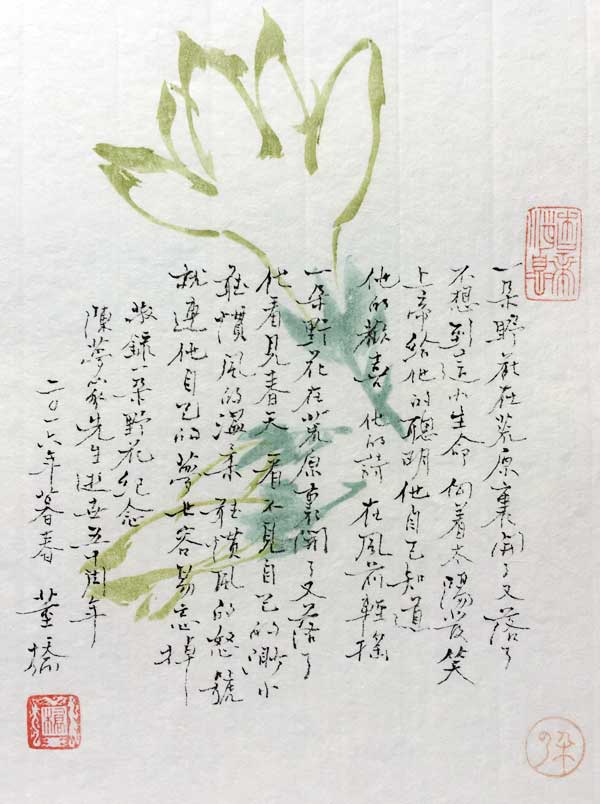 一朵野花在荒原裏開了又落了
不想到這小生命向着太陽發笑
上帝給他的聰明他自己知道
他的歡喜他的詩在風前輕搖
一朵野花在荒原裏開了又落了
他看見春天看不見自己的渺小
聽慣風的溫柔聽慣風的怒號
就連他自己的夢也容易忘掉
敬錄一朵野花紀念
陳夢家先生逝世五十周年
二〇一六年暮春 董橋